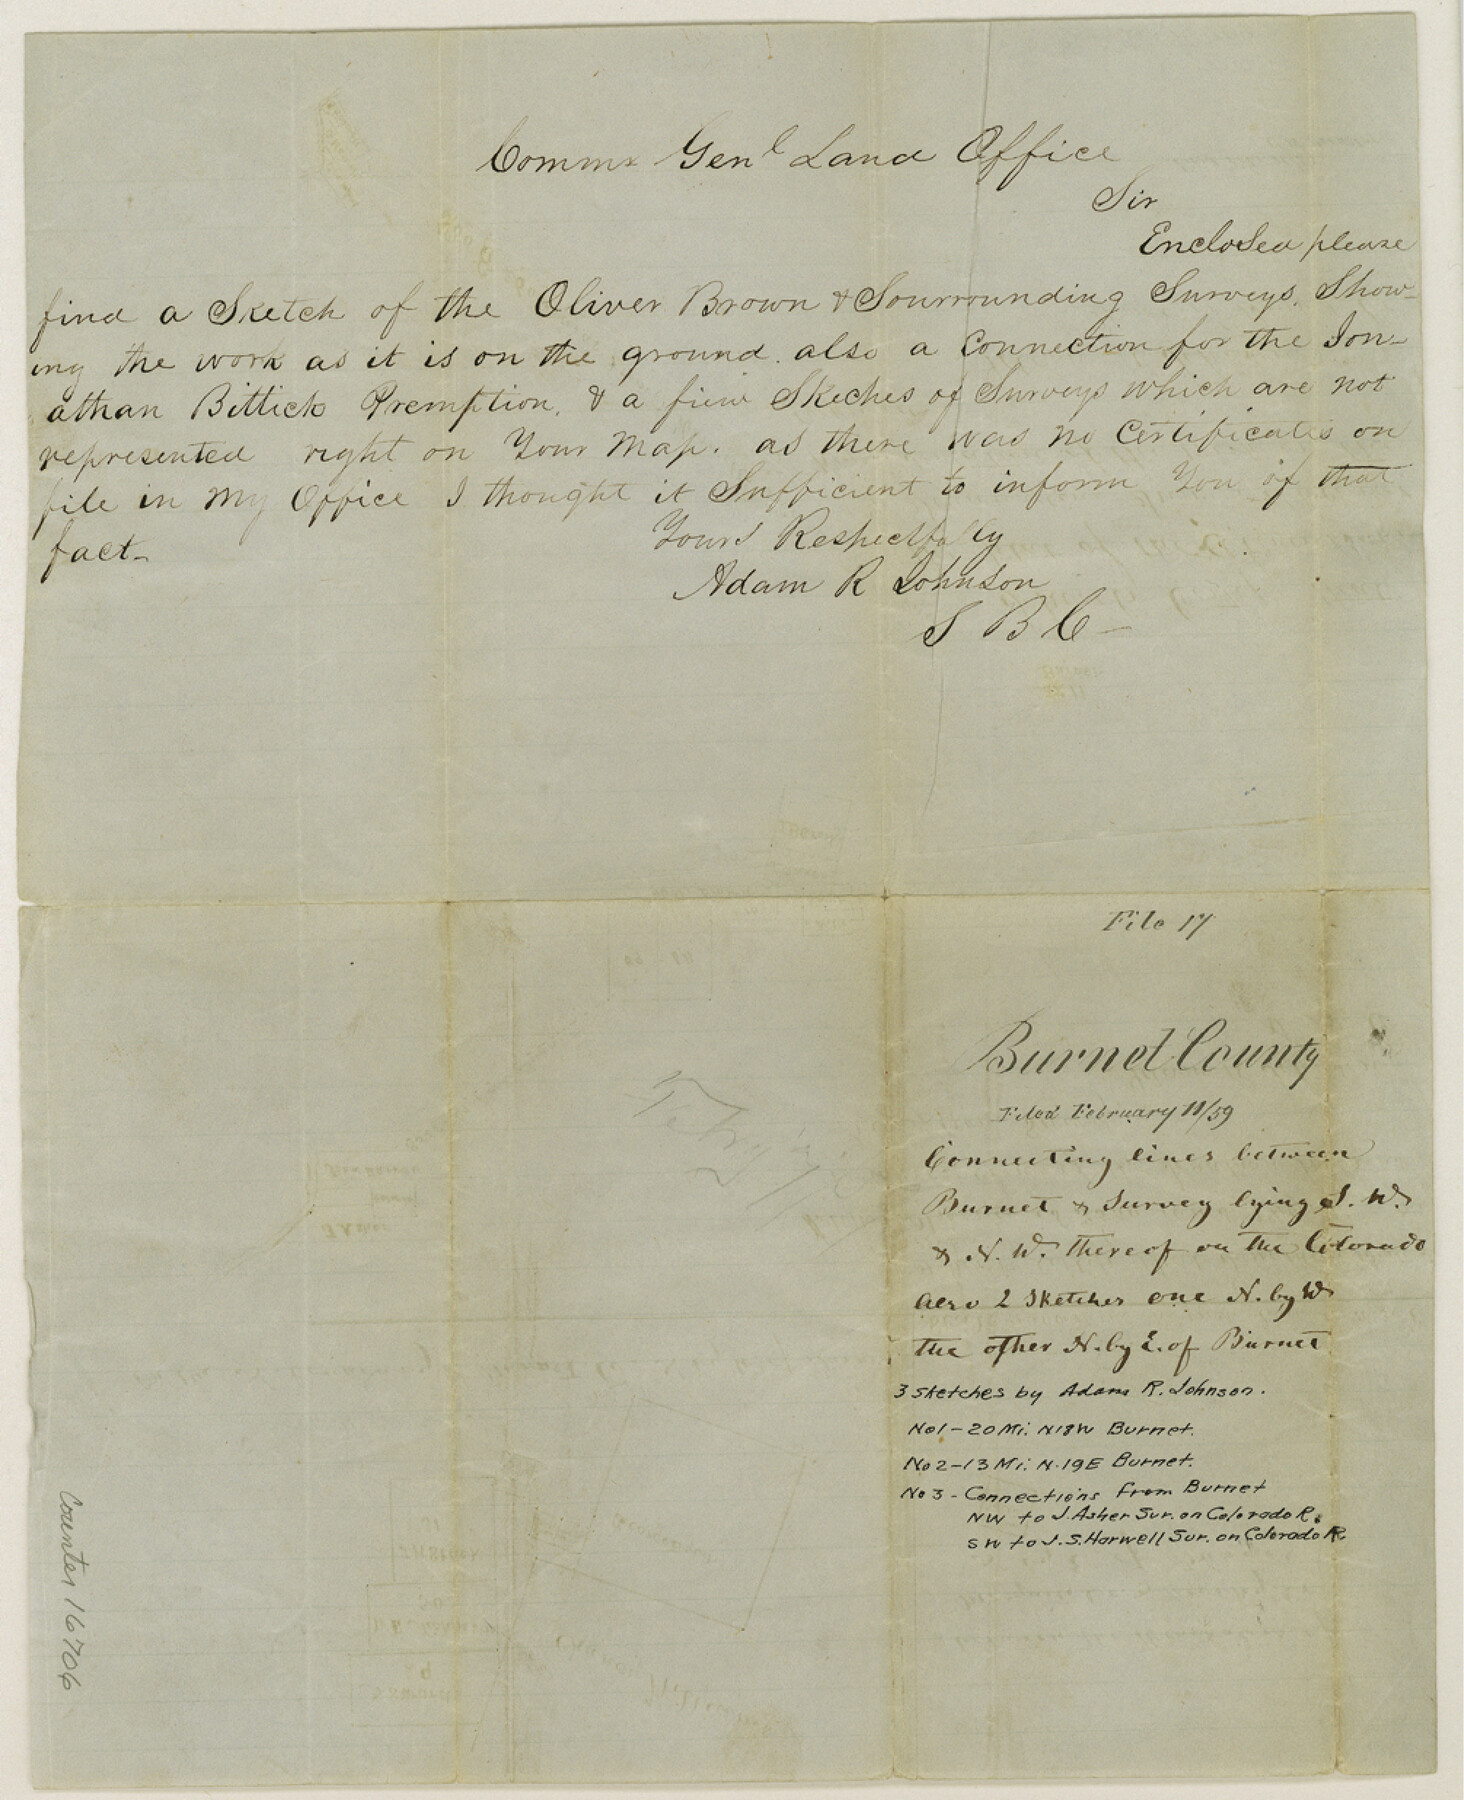 Commr Genl Land Office
Sir
Enclosed please
find a Sketch of the Oliver Brown & Sourrounding Surveys. Show-
ing the work as it is on the ground. also a Connection for the Jon-
athan Bittick Premption. & a fiew Skeches of Surveys which are not
represented right on Your Map. as there was no Certificates on
file in my Office I thought it Sufficient to inform You of that
fact-
Yours Respectfully
Adam R Johnson
S B C -
File 17
Burnet County
Filed February 11/59
Connecting lines between
Burnet & Survey lying S. W.
& N. W. thereof on the Colorado
Also 2 Sketches one N. by W
the other N. by E. of Burnet
3 Sketches by Adam R. Johnson.
No 1 - 20 Mi. N18W Burnet.
No 2 - 13 Mi. N. 19E Burnet.
No 3 - Connections from Burnet
NW to J. Asher Sur. on Colorado R.
SW to J. S. Harwell Sur. on Colorado R.
Counter 16706